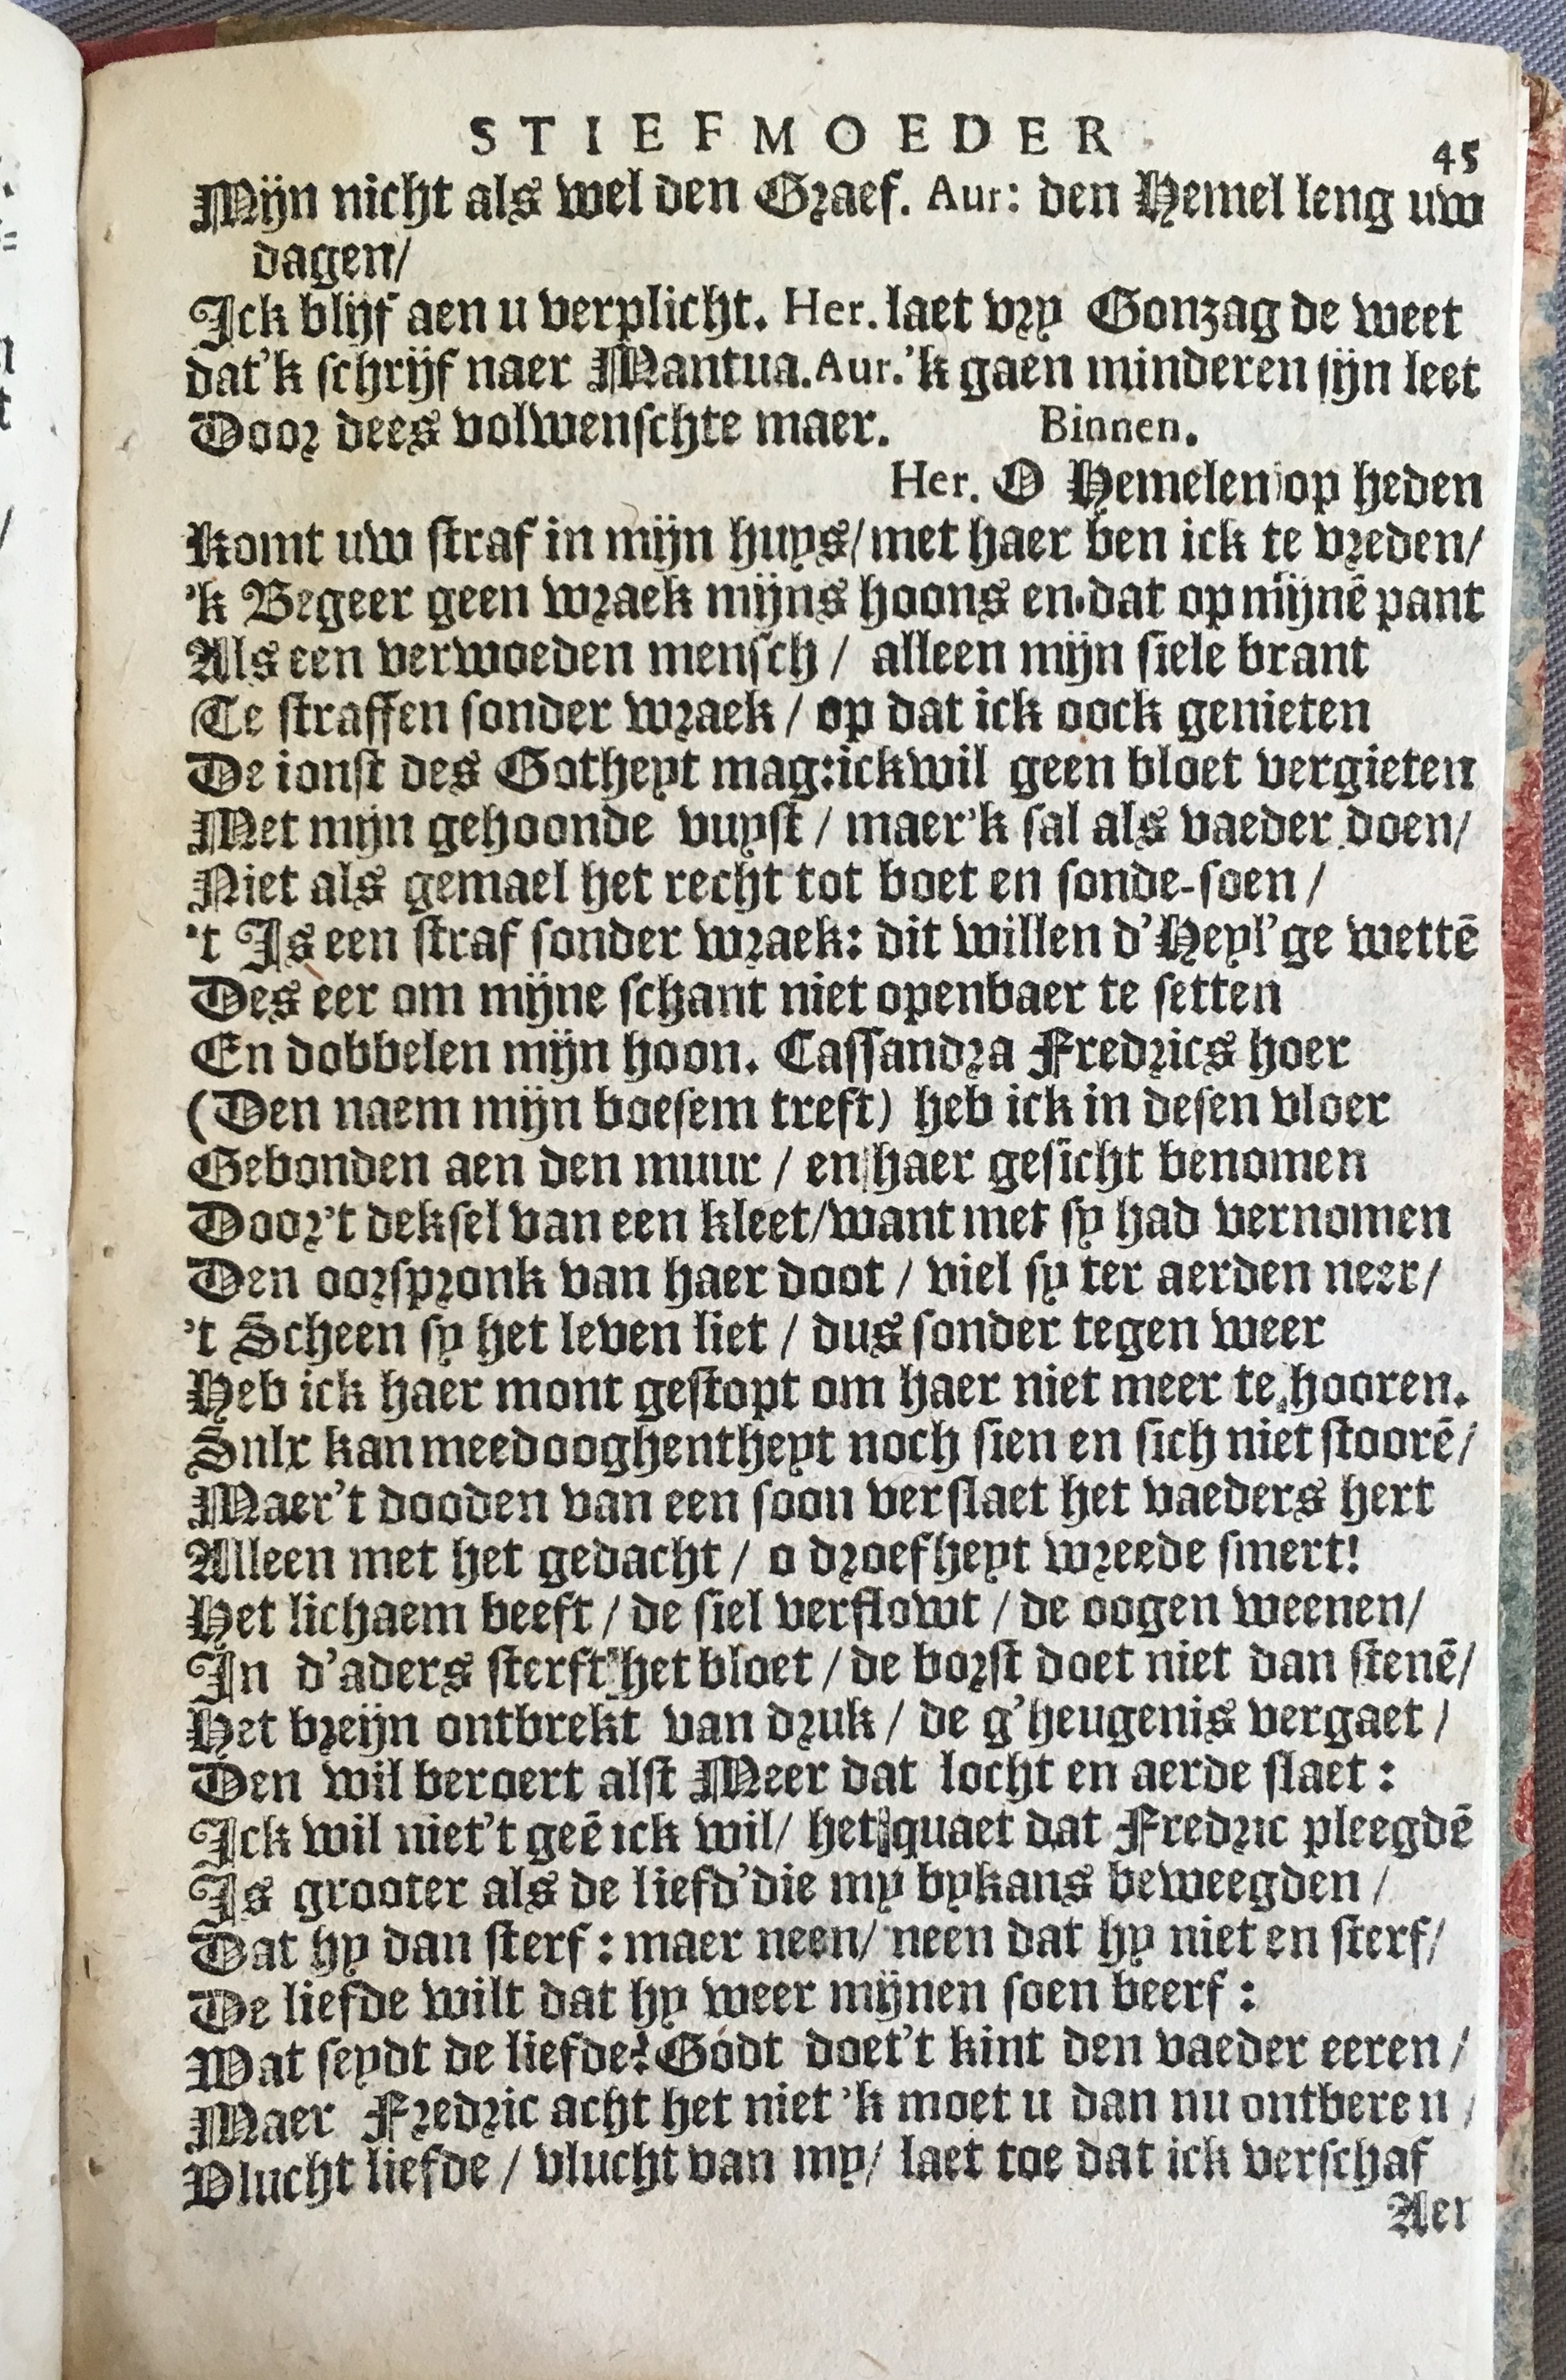 STIEFMOEDER
45
Mijn nicht als wel den Graef. Aur: den Hemel leng uw
dagen/
Ick blijf aen u verplicht. Her. laet vry Gonzag de weet
dat'k schrijf naer Mantua. Aur. 'k gaen minderen sijn leet
Door dees volwenschte maer. Binnen.
Her. O Hemelen op heden
Komt uw straf in mijn huys/ met haer ben ick te vreden/
'k Begeer geen wraek mijns hoons en dat op mijnē pant
Als een verwoeden mensch / alleen mijn siele brant
Te straffen sonder wraek / op dat ick oock genieten
De ionst des Gotheyt mag: ick wil geen bloet vergieten
Met mijn gehoonde vuyst / maer'k sal als vaeder doen/
Niet als gemael het recht tot boet en sonde-soen /
't Is een straf sonder wraek: dit willen d'Heyl'ge wettē
Des eer om mijne schant niet openbaer te setten
En dobbelen mijn hoon. Cassandra Fredrics hoer
(Den naem mijn boesem treft) heb ick in desen vloer
Gebonden aen den muur / en haer gesicht benomen
Door't deksel van een kleet/want met sy had vernomen
Den oorspronk van haer doot / viel sy ter aerden neer/
't Scheen sy het leven liet / dus sonder tegen weer
Heb ick haer mont gestopt om haer niet meer te hooren.
Sulx kan meedooghentheyt noch sien en sich niet stoorē/
Maer't dooden van een soon verslaet het vaeders hert
Alleen met het gedacht / o droefheyt wreede smert!
Het lichaem beeft / de siel verflowt / de oogen weenen/
In d'aders sterft het bloet / de borst doet niet dan stenē/
Het breijn ontbrekt van druk / de g'heugenis vergaet /
Den wil beroert alst Meer dat locht en aerde slaet :
Ick wil niet't geē ick wil/ het quaet dat Fredric pleegdē
Is grooter als de liefd'die my bykans beweegden /
Dat hy dan sterf : maer neen/ neen dat hy niet en sterf/
De liefde wilt dat hy weer mijnen soen beerf :
Wat seydt de liefde? Godt doet't kint den vaeder eeren /
Maer Fredric acht het niet 'k moet u dan nu ontberen /
Vlucht liefde / vlucht van my/ laet toe dat ick verschaf
Aer